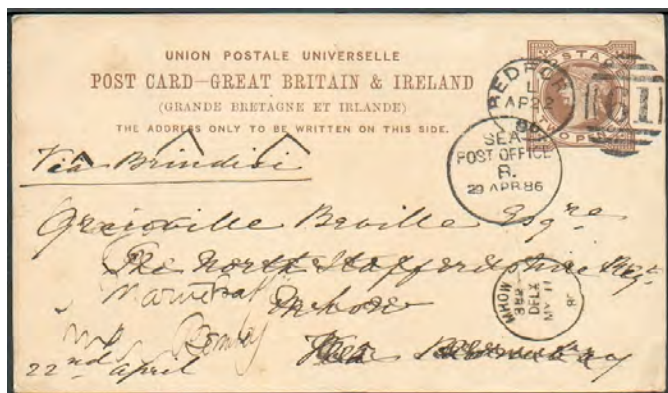 UNION POSTALE UNIVERSELLE
POST CARD–GREAT BRITAIN & IRELAND
(GRANDE BRETAGNE ET IRLANDE)
THE ADDRESS ONLY TO BE WRITTEN ON THIS SIDE.
BEDFOR
L
AP 22
86
SEA
POST OFFICE
B.
29 APR 86
TWO PE
Via Brindisi
Beville Esqre
The North Staffordshire Regt
Mhow
Bombay
22nd April
MHOW
MY 11